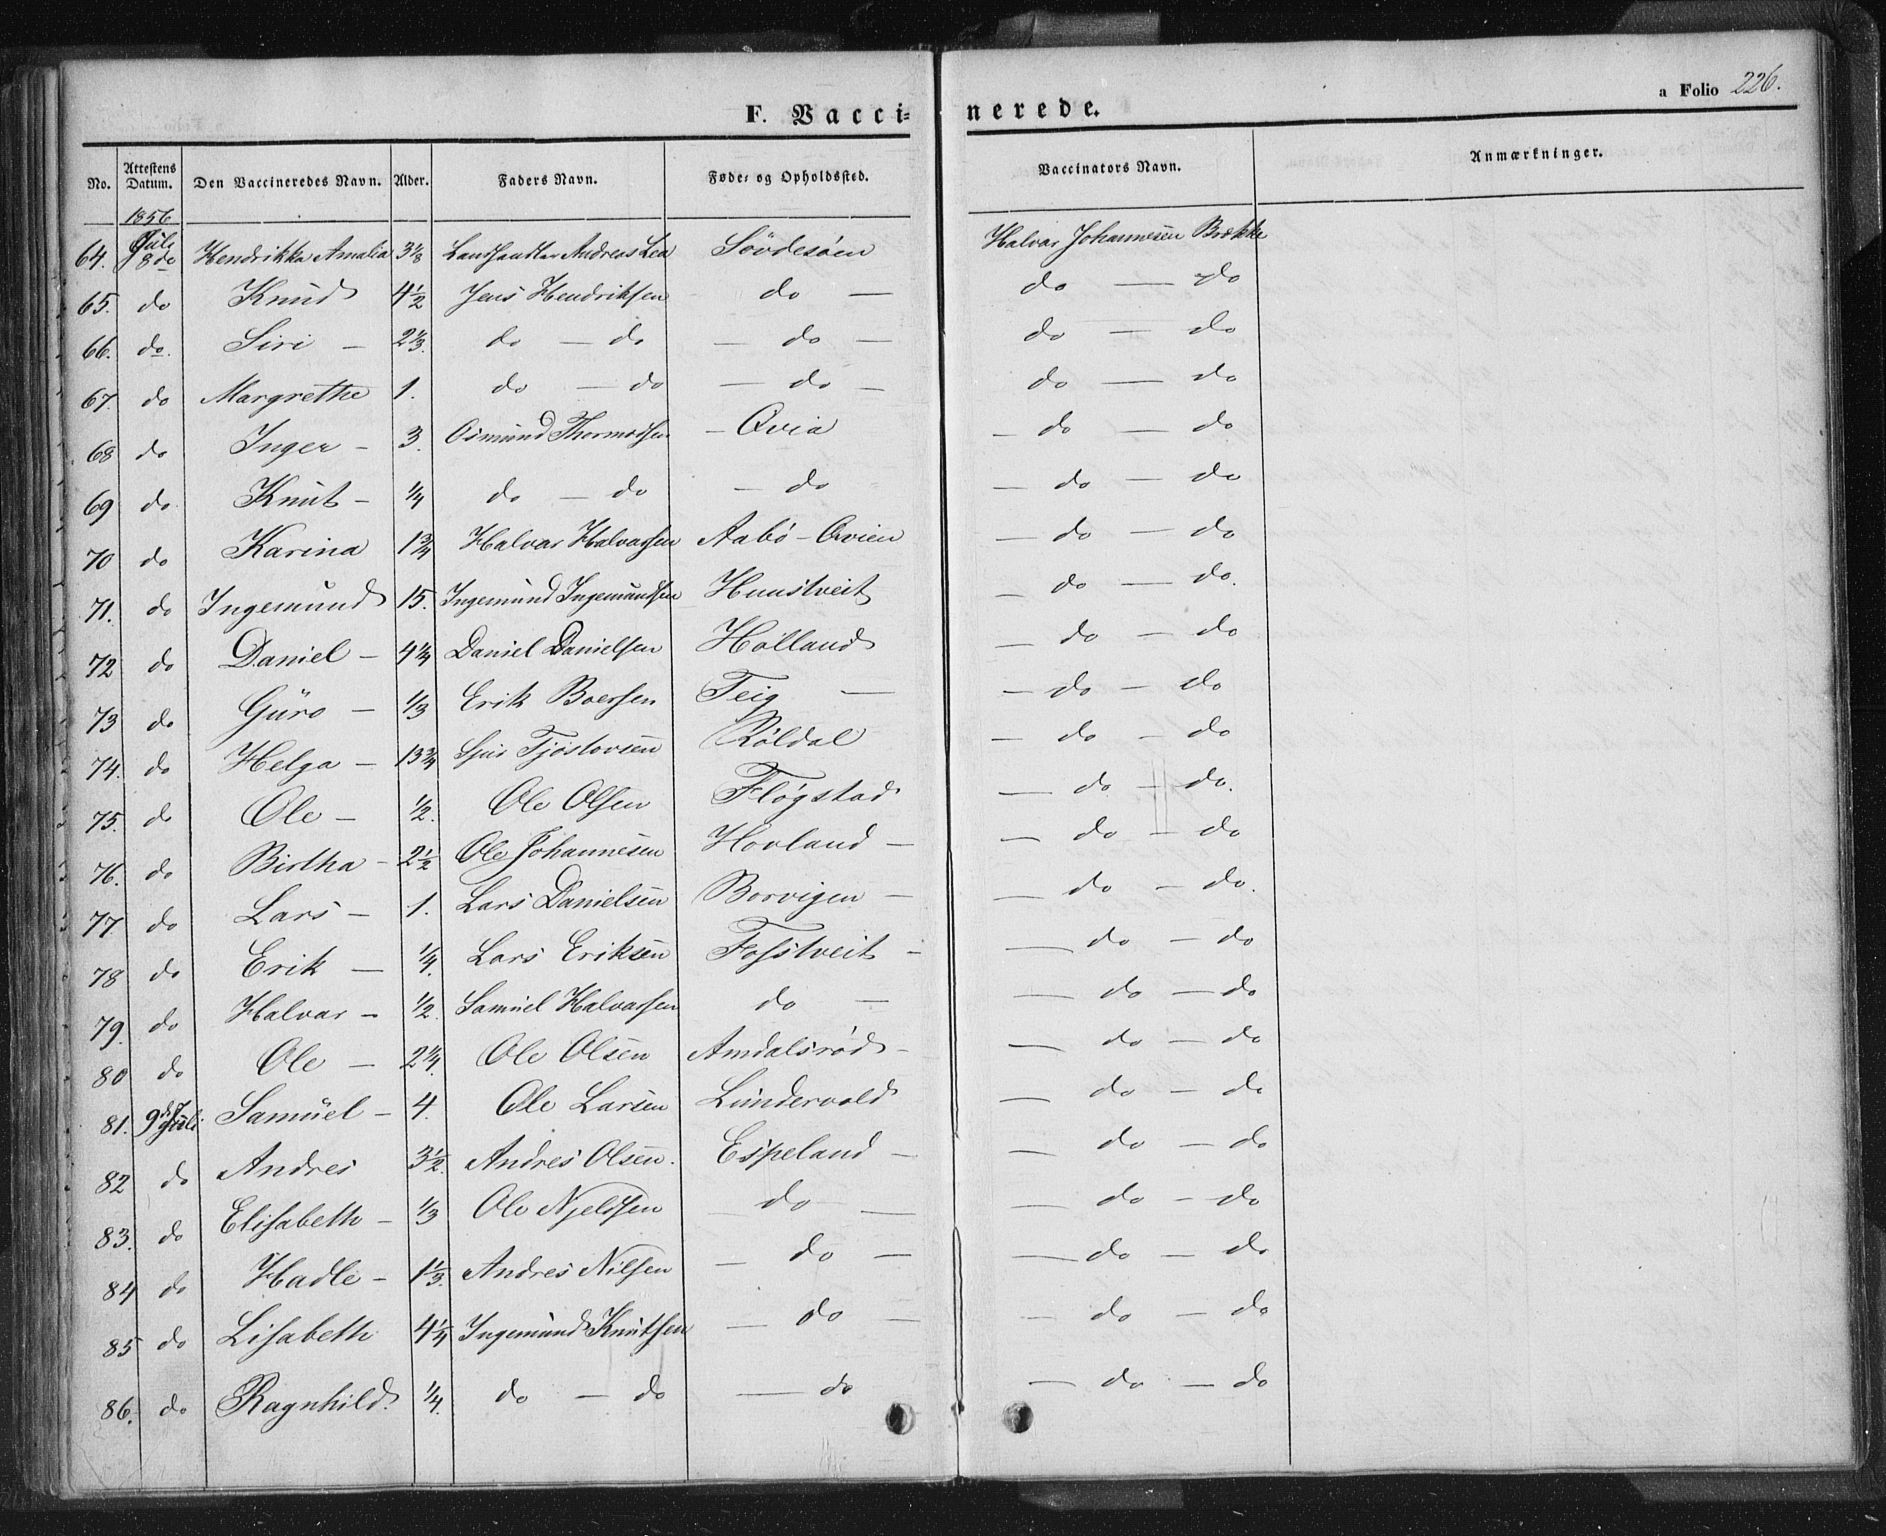 a Folio 226.
F. Vacci= nerede.
No. Attestens Datum. Den Vaccineredes Navn. Alder. Faders Navn. Føde= og Opholdssted. Vaccinators Navn. Anmærkninger.
1856
64. July 8de Hendrikka Amalia 3 1/8 Landhandler Andreas Lea Sövdesöen Halvar Johannesen Brække
65. do Knud 4 1/2 Jens Hendriksen do — do — do
66. do. Siri — 2 1/3. do — do — do — do — do
67. do Margrethe 1. do — do — do — do — do
68 do Inger — 3. Osmund Thormodsen — Qvia — do — do
69 do Knut — 1/4 do — do — do — do — do
70 do Karina 1 3/4 Halvar Halvarsen Aabö — Qvien — do — do
71. do Ingemund 15. Ingemund Ingemundsen Hunstveit — do — do.
72 do Daniel — 4 1/4 Daniel Danielsen Holland — do — do
73 do Guro — 1/3 Erik Boersen Teig — — do — do
74. do Helga — 13 3/4 Tjöstovsen Röldal — do — do
75. do Ole — 1/2. Ole Olsen Flögstad — do — do.
76. do Birtha — 2 1/2 Ole Johannesen Hovland — — do — do
77 do Lars — 1. Lars Danielsen Borvigen — — do — do.
78 do Erik — 1/4. Lars Eriksen Fosstveit — — do — do
79. do Halvar — 1/2. Samuel Halvarsen do — — do — do
80 do Ole — 2 1/4. Ole Olsen Amdalsröd — — do — do
81. 9de Juli Samuel — 4. Ole Larsen Lundervold — do — do
82 do Andres 3 1/2. Andres Olsen. Espeland — — do — do
83. do Elisabeth — 1/3 Ole Njeldsen do — — do — do
84 do Hadle — 1 1/3. Andres Nilsen — do — — do — do
85 do Lisabeth 4 1/4 Ingemund Knutsen — do — — do — do
86. do Ragnhild. 1/4. do — do — do — do — do